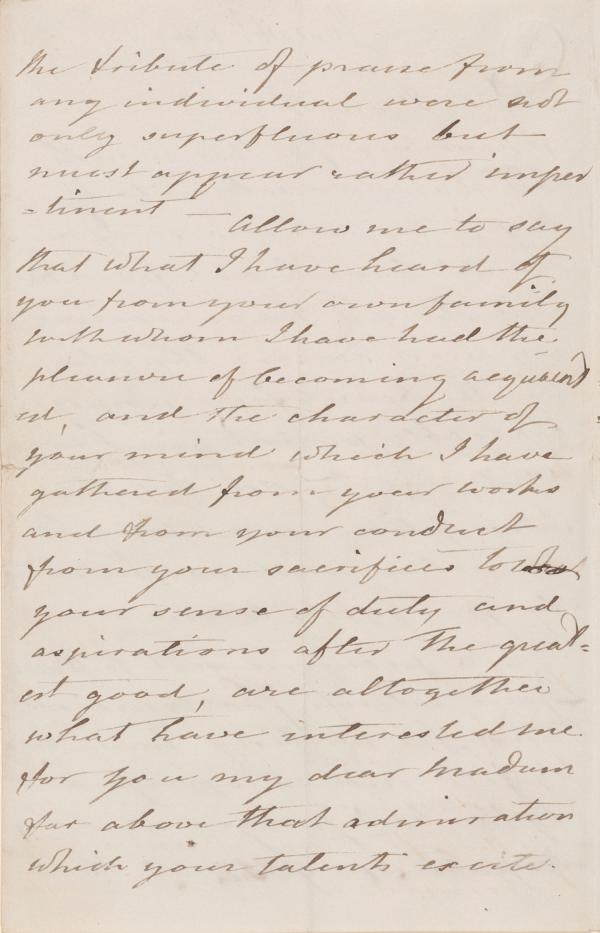 the tribute of praise from
any individual were not
only superfluous but
must appear rather imper
=tinent — Allow me to say
that what I have heard of
you from your own family
with whom I have had the
pleasure of becoming acquaint
ed, and the character of
your mind which I have
gathered from your works
and from your conduct
from your sacrifices to
your sense of duty and
aspirations after the great=
est good, are altogether
what have interested me
for you my dear Madam
far above that admiration
which your talents excite.